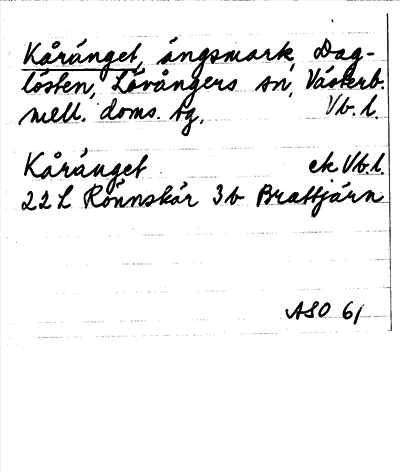 Kåränget, ängsmark, Dag-
lösten, Lövångers sn, Västerb.
mell. doms. tg, Vb. l.
Kåränget ek Vb. l.
22 L Rönnskär 3b Brattjärn
ASO 61